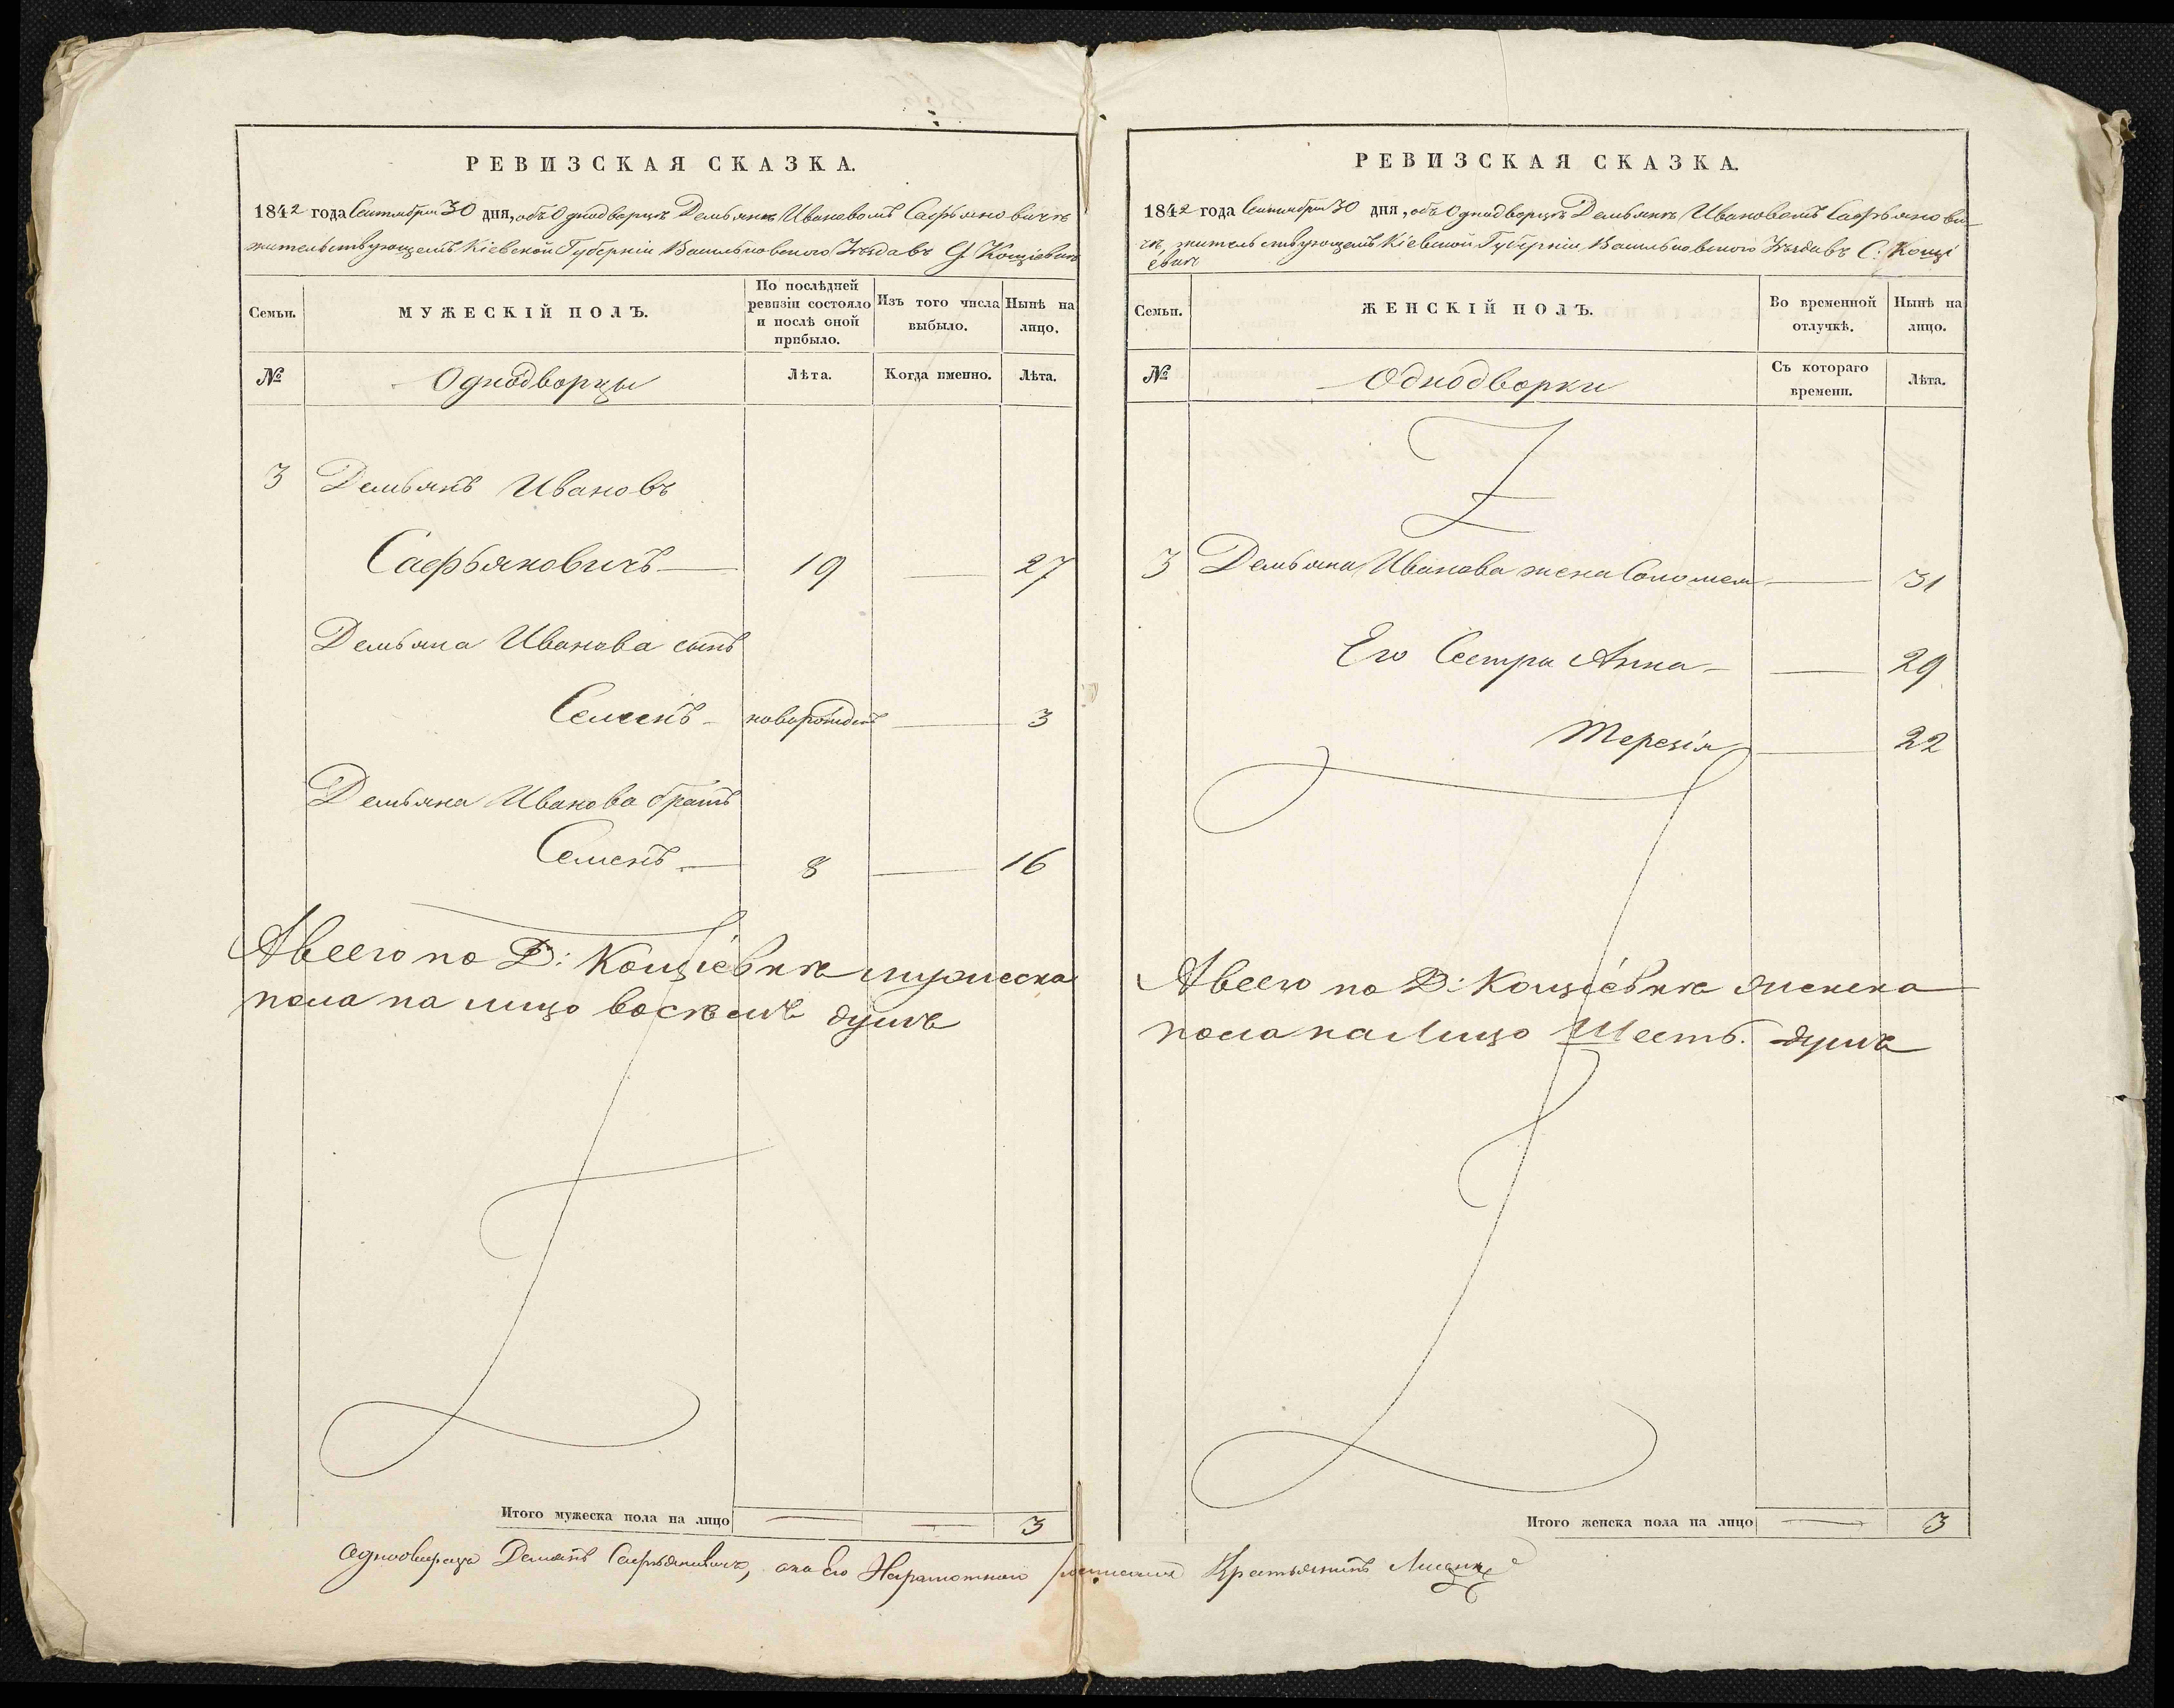 РЕВИЗСКАЯ СКАЗКА.
1842 года Сентября 30 дня, объ Однодворцѣ Демьянѣ Ивановомъ Сафьяновичѣ
жительствующемъ Кіевской Губерніи Васильковскаго Уѣзда въ
Семьи.
МУЖЕСКІЙ ПОЛЪ.
По послѣдней
ревизіи состояло
и послѣ оной
прибыло.
Изъ того числа
выбыло.
Нынѣ на
лицо.
№
Однодворцы
Лѣта.
Когда именно.
Лѣта.
3 Демьянъ Ивановъ
Сафьяновичъ — 19 — 27
Демьяна Иванова сынъ
Семенъ — новорожденъ — 3
Демьяна Иванова братъ
Семенъ — 8 — 16
А всего по Д: Кощіевкѣ мужеска
пола на лицо восемъ душъ
Итого мужеска пола на лицо — — 3
РЕВИЗСКАЯ СКАЗКА.
1842 года Сентября 30 дня, объ Однодворцѣ Демьянѣ Ивановомъ Сафьянови-
чѣ, жительствующемъ Кіевской Губерніи Васильковскаго Уѣзда въ С. Кощі
евкѣ
Семьи.
ЖЕНСКІЙ ПОЛЪ.
Во временной
отлучкѣ.
Нынѣ на
лицо.
№
Однодворки
Съ котораго
времени.
Лѣта.
3 Демьяна Иванова жена Соломея — 31
Его Сестра Анна — — 29
Терезія — 22
А всего по Д: Кощіевкѣ женска
пола на лицо Шесть. душъ
Итого женска пола на лицо — 3
Однодворецъ Демьянъ Сафьяновичъ, а за его Неграмотного